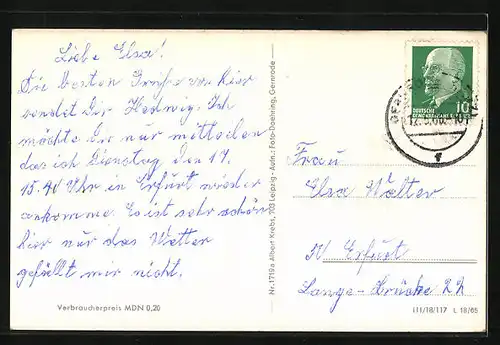 Liebe Elsa!
Die besten Grüße von hier
sendet Dir Hedwig. Ich
möchte Dir nur mitteilen
das ich Dienstag den 17.
15.40 Uhr in Erfurt wieder
ankomme. Es ist sehr schön
hier nur das Wetter
gefällt mir nicht.
Verbraucherpreis MDN 0,20
Nr. 1719a Albert Krebs, 703 Leipzig - Aufn.: Foto-Daehring, Gernrode
10
DEUTSCHE
Frau
Elsa Walter
Erfurt
Lange-Brücke 22
III/18/117 L 18/65